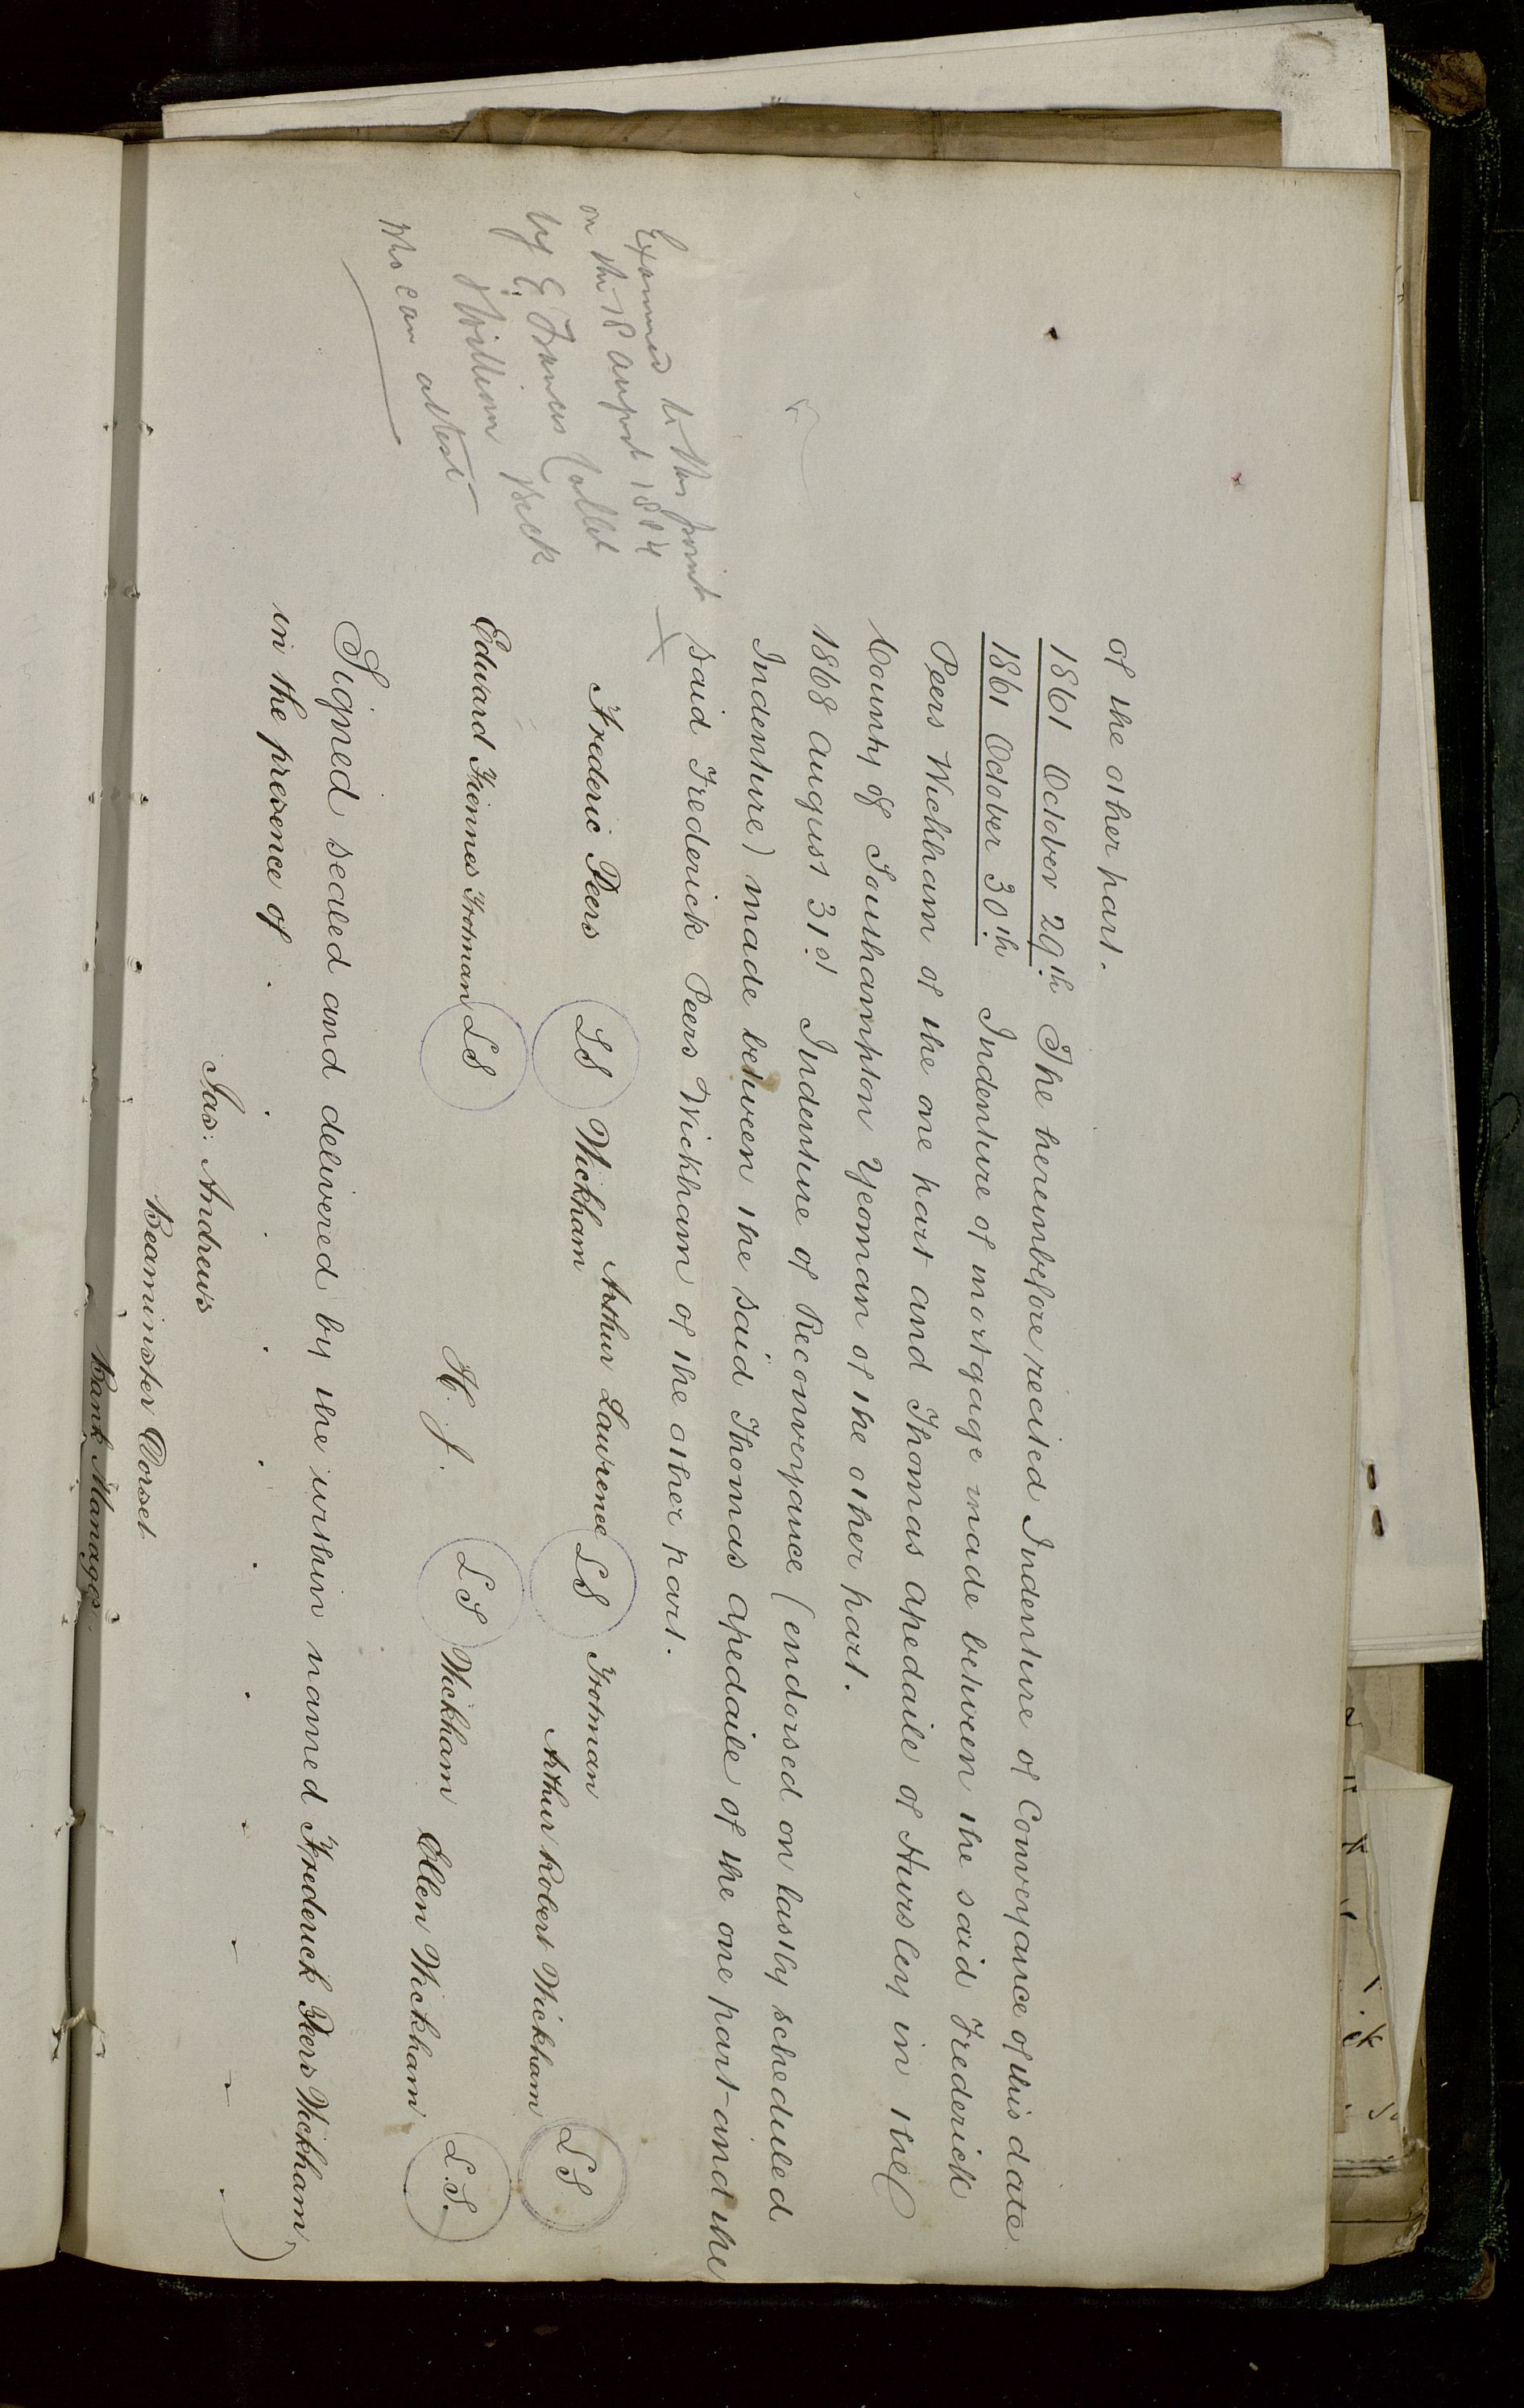 of the other part.
1861 October 29th. The hereinbefore recited Indenture of Conveyance of this date
1861 October 30th Indenture of mortgage made between the said Frederick
Peers Wickham of the one part and Thomas Apedaile of Hursley in the
County of Southampton Yeoman of the other part.
1868 August 31st Indenture of Reconveyance (endorsed on lastly scheduled
Indenture) made between the said Thomas Apedaile of the one part and the
said Frederick Peers Wickham of the other part.
Examined to this point
on the 18 August 1884
by E. Frances Collet
William Beck
who can attest
Frederic Peers LS Wickham Arthur Lawrence LS Trotman
Arthur Robert Wickham LS
Edward Fiennes Trotman LS H. J. LS Wickham Ellen Wickham L.S.
Signed sealed and delivered by the within named Frederick Peers Wickham )
in the presence of
Jas: Andrews
Beaminster Dorset
Bank Manager